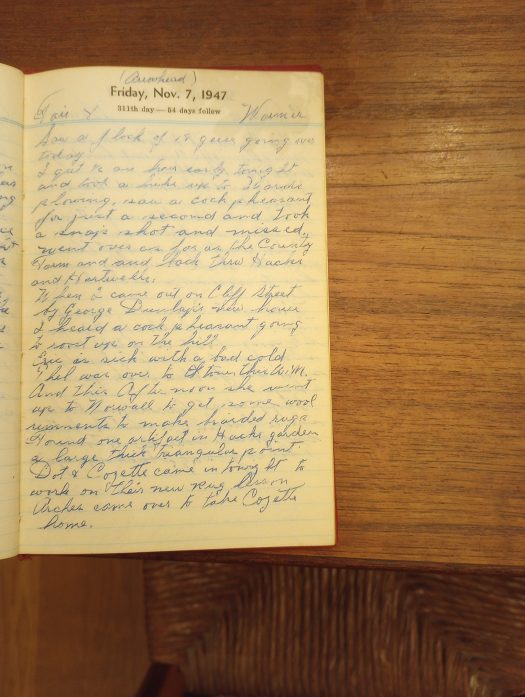 (Arrowhead)
Friday, Nov. 7, 1947
311th day — 54 days follow
Fair & Warmer
Saw a flock of 18 geese going over
today.
I got ½ an hour early tonight
and took a hike up to
plowing, saw a cock pheasant
for just a second and took
a snap shot and missed,
went over as far as the County
Farm and and back thru Hacks
and Hartwells.
When I came out on Cliff Street
by George Dunlap's new house
I heard a cock pheasant going
to roost up on the hill.
is sick with a bad cold
Thel was over to town this A.M.
And this After noon she went
up to to get some wool
remnants to make braided rugs
Found one artifact in Hacks garden
a large thick triangular point
Dot & Cozette came in tonight to
work on their new rug lesson
Archer came over to take Cozette
home.